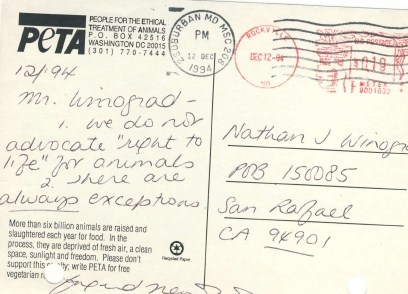 PETA
PEOPLE FOR THE ETHICAL
TREATMENT OF ANIMALS
P.O. BOX 42516
WASHINGTON DC 20015
(301) 770-7444
SUBURBAN MD MSC 208
PM
12 DEC
1994
ROCKVILLE
DEC 12-94
MD
019
METER
12/94
Mr. Winograd -
1. We do not
advocate "right to
life" for animals
2. There are
always exceptions.
Nathan J Winogr
POB 150085
San Rafael
CA 94901
More than six billion animals are raised and
slaughtered each year for food. In the
process, they are deprived of fresh air, a clean
space, sunlight and freedom. Please don't
support this; write PETA for free
vegetarian
Recycled Paper